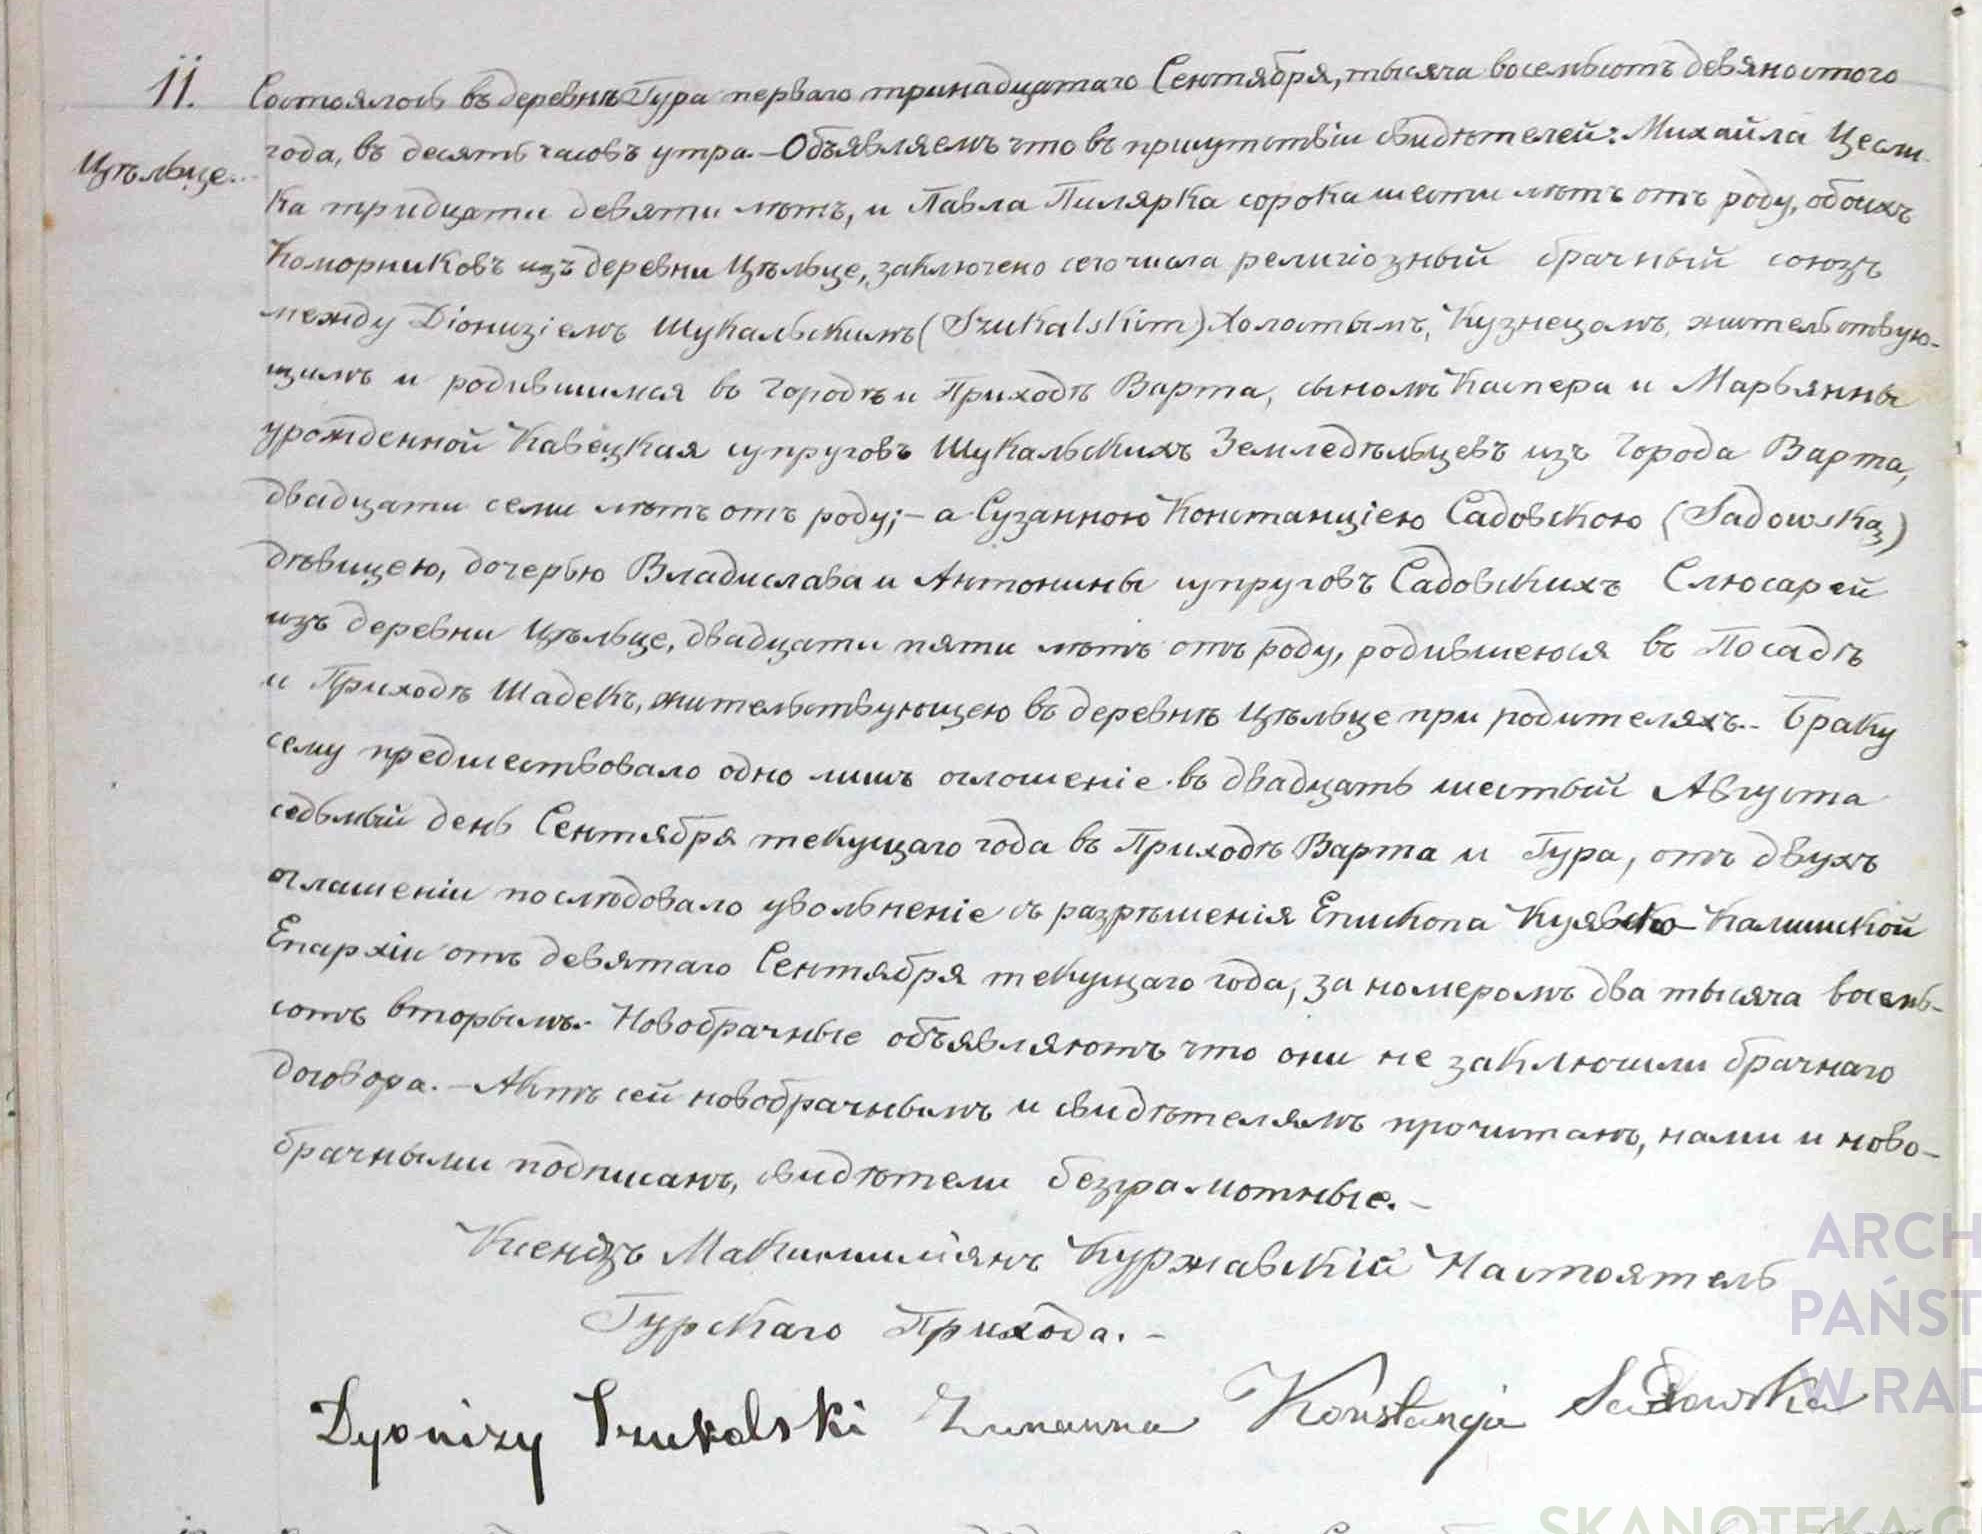 11.
Цѣльце.
Состоялось въ деревнѣ Гура перваго тринадцатаго Сентября, тысяча восемьсотъ девяностого
года, въ десять часовъ утра. – Объявляемъ что въ присутствіи свидѣтелей: Михайла Цесли-
ка тридцати девяти лѣтъ, и Павла Пилярка сорока шести лѣтъ отъ роду, обоихъ
Коморниковъ изъ деревни Цѣльце, заключено сего числа религіозный брачный союзъ
между Діонизіемъ Шукальскимъ (Szukalskim) Холостымъ, Кузнецомъ, жительствую-
щимъ и родившимся въ городѣ и Приходѣ Варта, сыномъ Каспера и Марьянны
урожденной Кавецкая супруговъ Шукальскихъ Земледѣльцевъ изъ города Варта,
двадцати семи лѣтъ отъ роду; – а Сузанною Констанціею Садовскою (Sadowską)
дѣвицею, дочерью Владислава и Антонины супруговъ Садовскихъ Слюсарей
изъ деревни Цѣльце, двадцати пяти лѣтъ отъ роду, родившеюся въ Посадѣ
и Приходѣ Шадекъ, жительствующею въ деревнѣ Цѣльце при родителяхъ. – Браку
сему предшествовало одно лишъ оглошеніе въ двадцать шестый Августа
седьмый день Сентября текущаго года въ Приходѣ Варта и Гура, отъ двухъ
оглашеніи послѣдовало увольненіе съ разрѣшенія Епископа Куявско-Калишской
Епархіи отъ девятаго Сентября текущаго года, за номеромъ два тысяча восемь-
сотъ вторымъ. – Новобрачные объявляютъ что они не заключили брачнаго
договора. – Актъ сей новобрачнымъ и свидѣтелямъ прочитанъ, нами и ново-
брачными подписанъ, свидѣтели безграмотные. –
Ксендзъ Максимиліянъ Куржавскій Настоятель
Гурскаго Прихода. –
Dyonizy Szukalski Zuzanna Konstancja Sadowska
ARCH
PAŃST
W RAD
SKANOTEKA.G